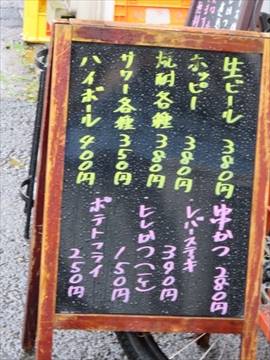 生ビール 380円
ホッピー 380円
焼酎各種 380円
サワー各種 350円
ハイボール 400円
串かつ 280円
レバーステーキ 390円
ヒレかつ(一ケ) 150円
ポテトフライ 250円